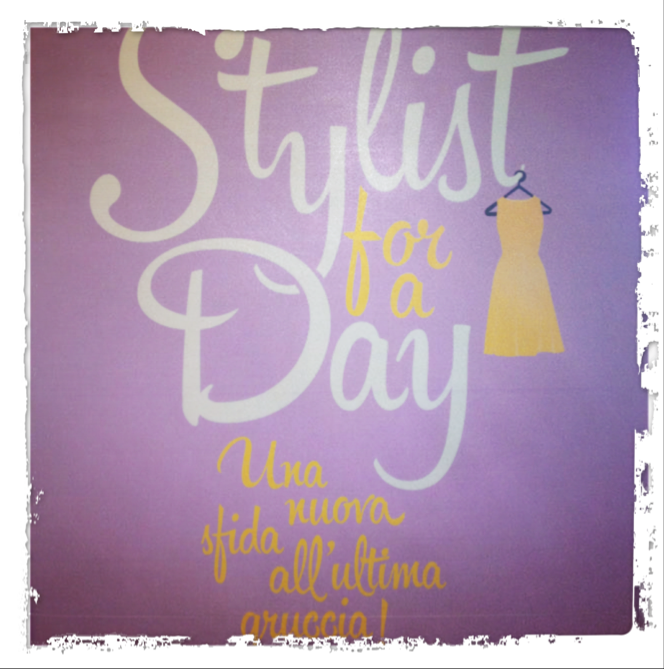 Stylist
for
a
Day
Una
nuova
sfida
all'ultima
gruccia!